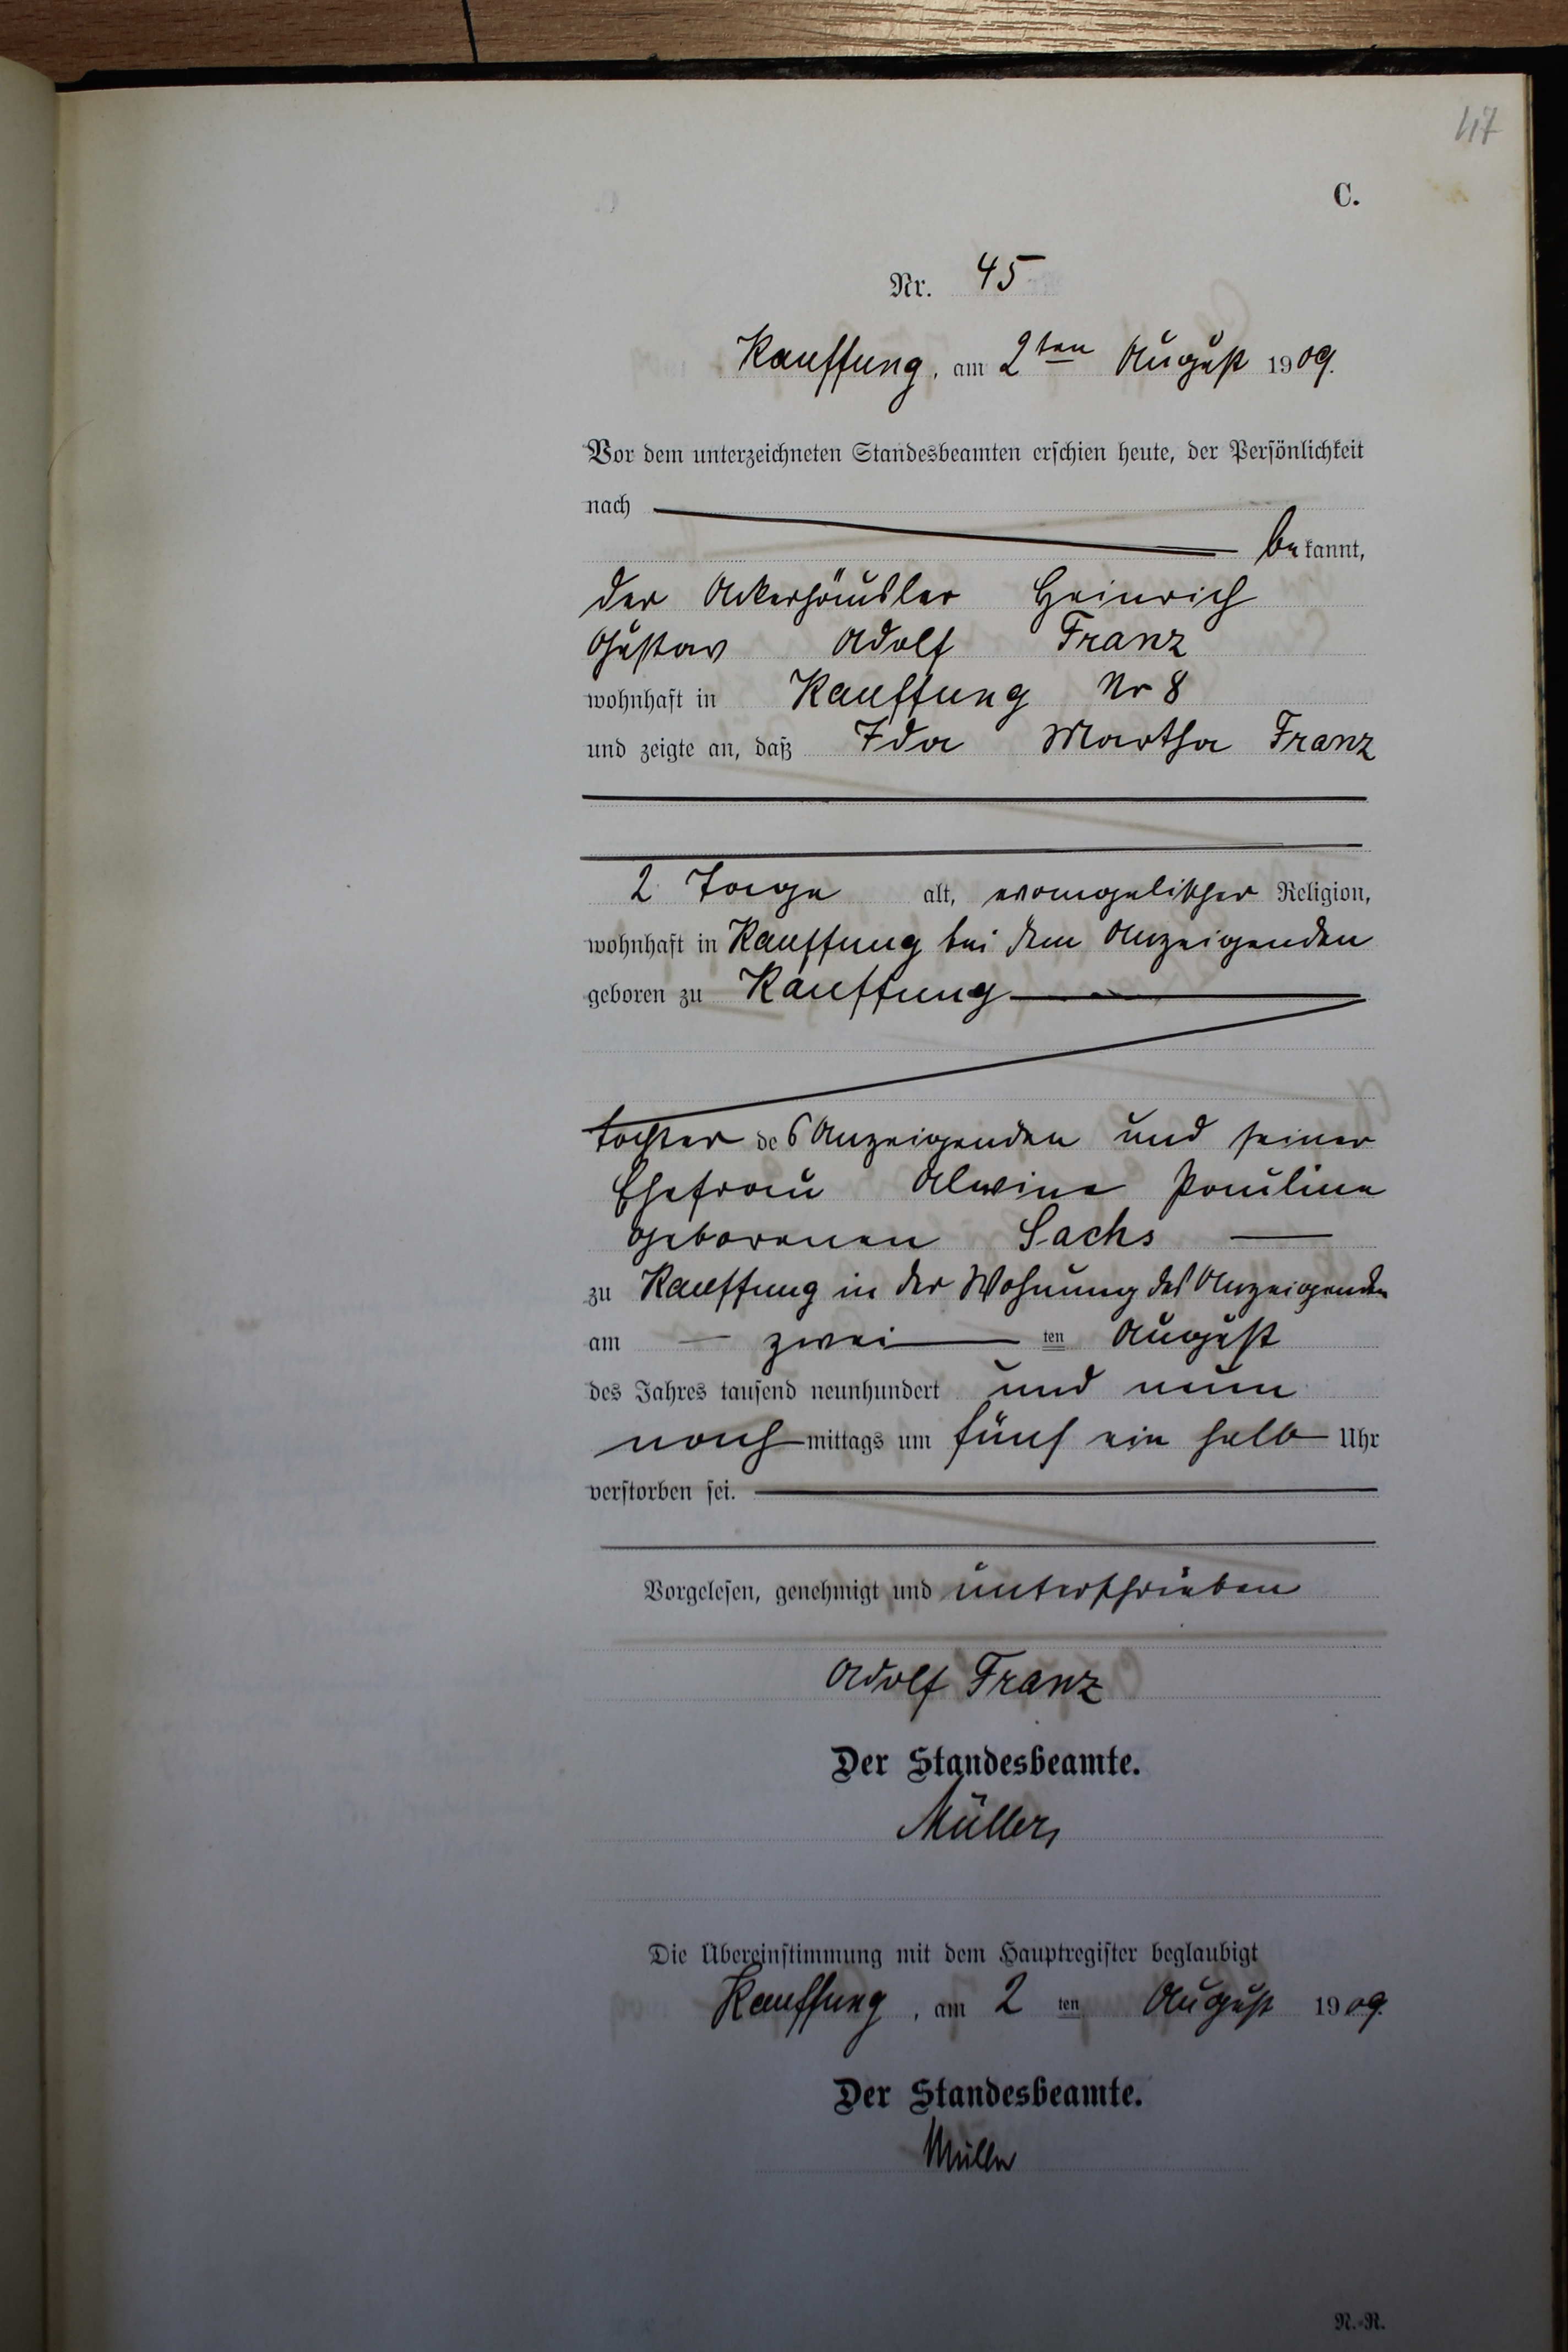 47
C.
Nr. 45
Kauffung, am 2ten August 1909.
Vor dem unterzeichneten Standesbeamten erschien heute, der Persönlichkeit
nach
bekannt,
der Ackerhäusler Heinrich
Gustav Adolf Franz
wohnhaft in Kauffung Nr 8
und zeigte an, daß Ida Martha Franz
2 Tage alt, evangelischer Religion,
wohnhaft in Kauffung bei dem Anzeigenden
geboren zu Kauffung
Tochter des Anzeigenden und seiner
Ehefrau Alwine Pauline
geborenen Sachs
zu Kauffung in der Wohnung des Anzeigenden
am zwei ten August
des Jahres tausend neunhundert und neun
nachmittags um fünf ein halb Uhr
verstorben sei.
Vorgelesen, genehmigt und unterschrieben
Adolf Franz
Der Standesbeamte.
Müller
Die Übereinstimmung mit dem Hauptregister beglaubigt
Kauffung, am 2 ten August 1909
Der Standesbeamte.
Müller
N.-R.